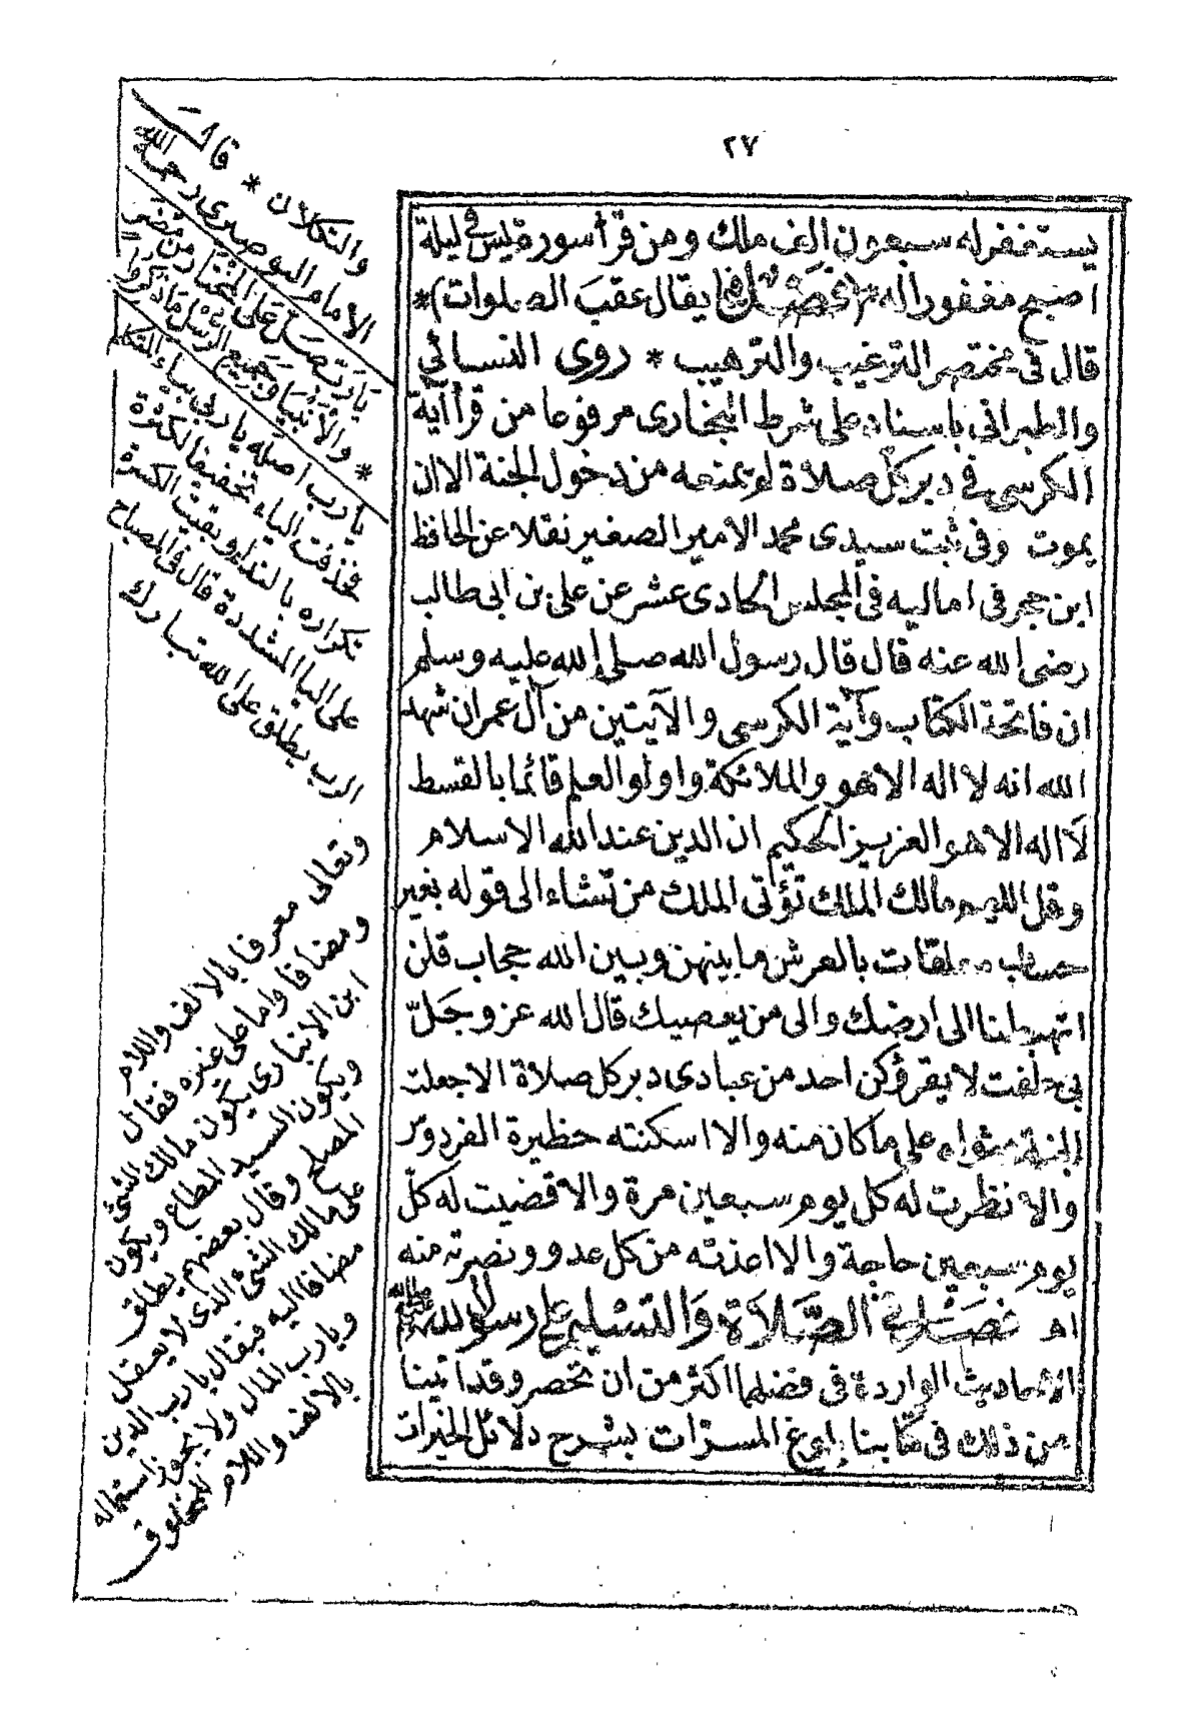 ٢٧
يستغفر له سبعون الف ملك ومن قرأ سورة يس في ليلة
اصبح مغفورا له *(فصل فيما يقال عقب الصلوات)*
قال في مختصر الترغيب والترهيب * روى النسائي
والطبراني باسناد على شرط البخاري مرفوعا من قرأ آية
الكرسي في دبر كل صلاة لم يمنعه من دخول الجنة الا ان
يموت وفى ثبت سيدى محمد الامير الصغير نقلا عن الحافظ
ابن حجر فى اماليه فى المجلس الحادى عشر عن على بن ابى طالب
رضى الله عنه قال قال رسول الله صلى الله عليه وسلم
ان فاتحة الكتاب وآية الكرسى والآيتين من آل عمران شهد
الله انه لا اله الا هو والملائكة واولو العلم قائما بالقسط
لا اله الا هو العزيز الحكيم ان الدين عند الله الاسلام
وقل اللهم مالك الملك تؤتى الملك من تشاء الى قوله بغير
حساب معلقات بالعرش ما بينهن وبين الله حجاب قلن
اتهبطنا الى ارضك والى من يعصيك قال الله عز وجلّ
بى حلفت لا يقرؤكن احد من عبادى دبر كل صلاة الا جعلت
الجنة مثواه على ما كان منه والا اسكنته حظيرة الفردوس
والا نظرت له كل يوم سبعين مرة والا قضيت له كلّ
يوم سبعين حاجة والا اعذته من كل عدو ونصرته منه
اه فصل فى الصّلاة والتسليم على رسول الله
الاحاديث الواردة فى فضلها اكثر من ان تحصر وقد اتينا
من ذلك فى كتابنا بلوغ المسرّات بشرح دلائل الخيرات
والتكلان * قال
الامام البوصيرى رحمه الله
يا رَبّ صَلّ على المُخْتار من مُضَرٍ
* والأنبيا وجميع الرسل ما ذكروا
يارب اصله يا ربى بياء المتكلم
فحذفت الياء تخفيفا لكثرة
تكراره بالنداء وبقيت الكسرة
على البا المشددة قال فى المصباح
الرب يطلق على الله تبارك
وتعالى معرفا بالالف واللام
ومضافا واما على غيره فقال
ابن الانبارى يكون مالك الشئ
ويكون السيد المطاع ويكون
المصلح وقال بعضهم يطلق
على مالك الشئ الذى لا يعقل
مضافا اليه فيقال يا رب الدين
ويا رب المال ولا يجوز استعماله
بالالف واللام للمخلوق